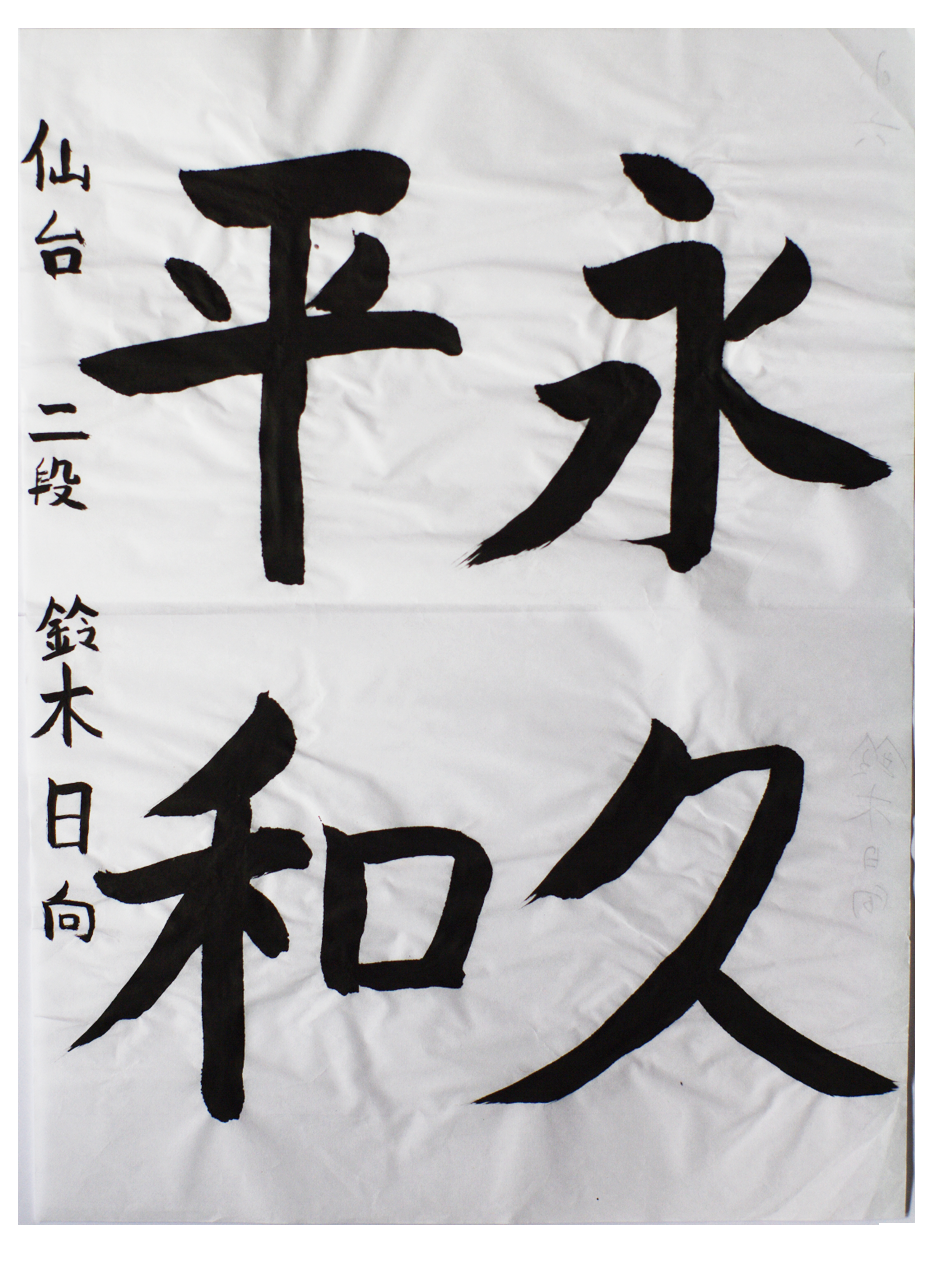 永久
平和
仙台 二段 鈴木日向